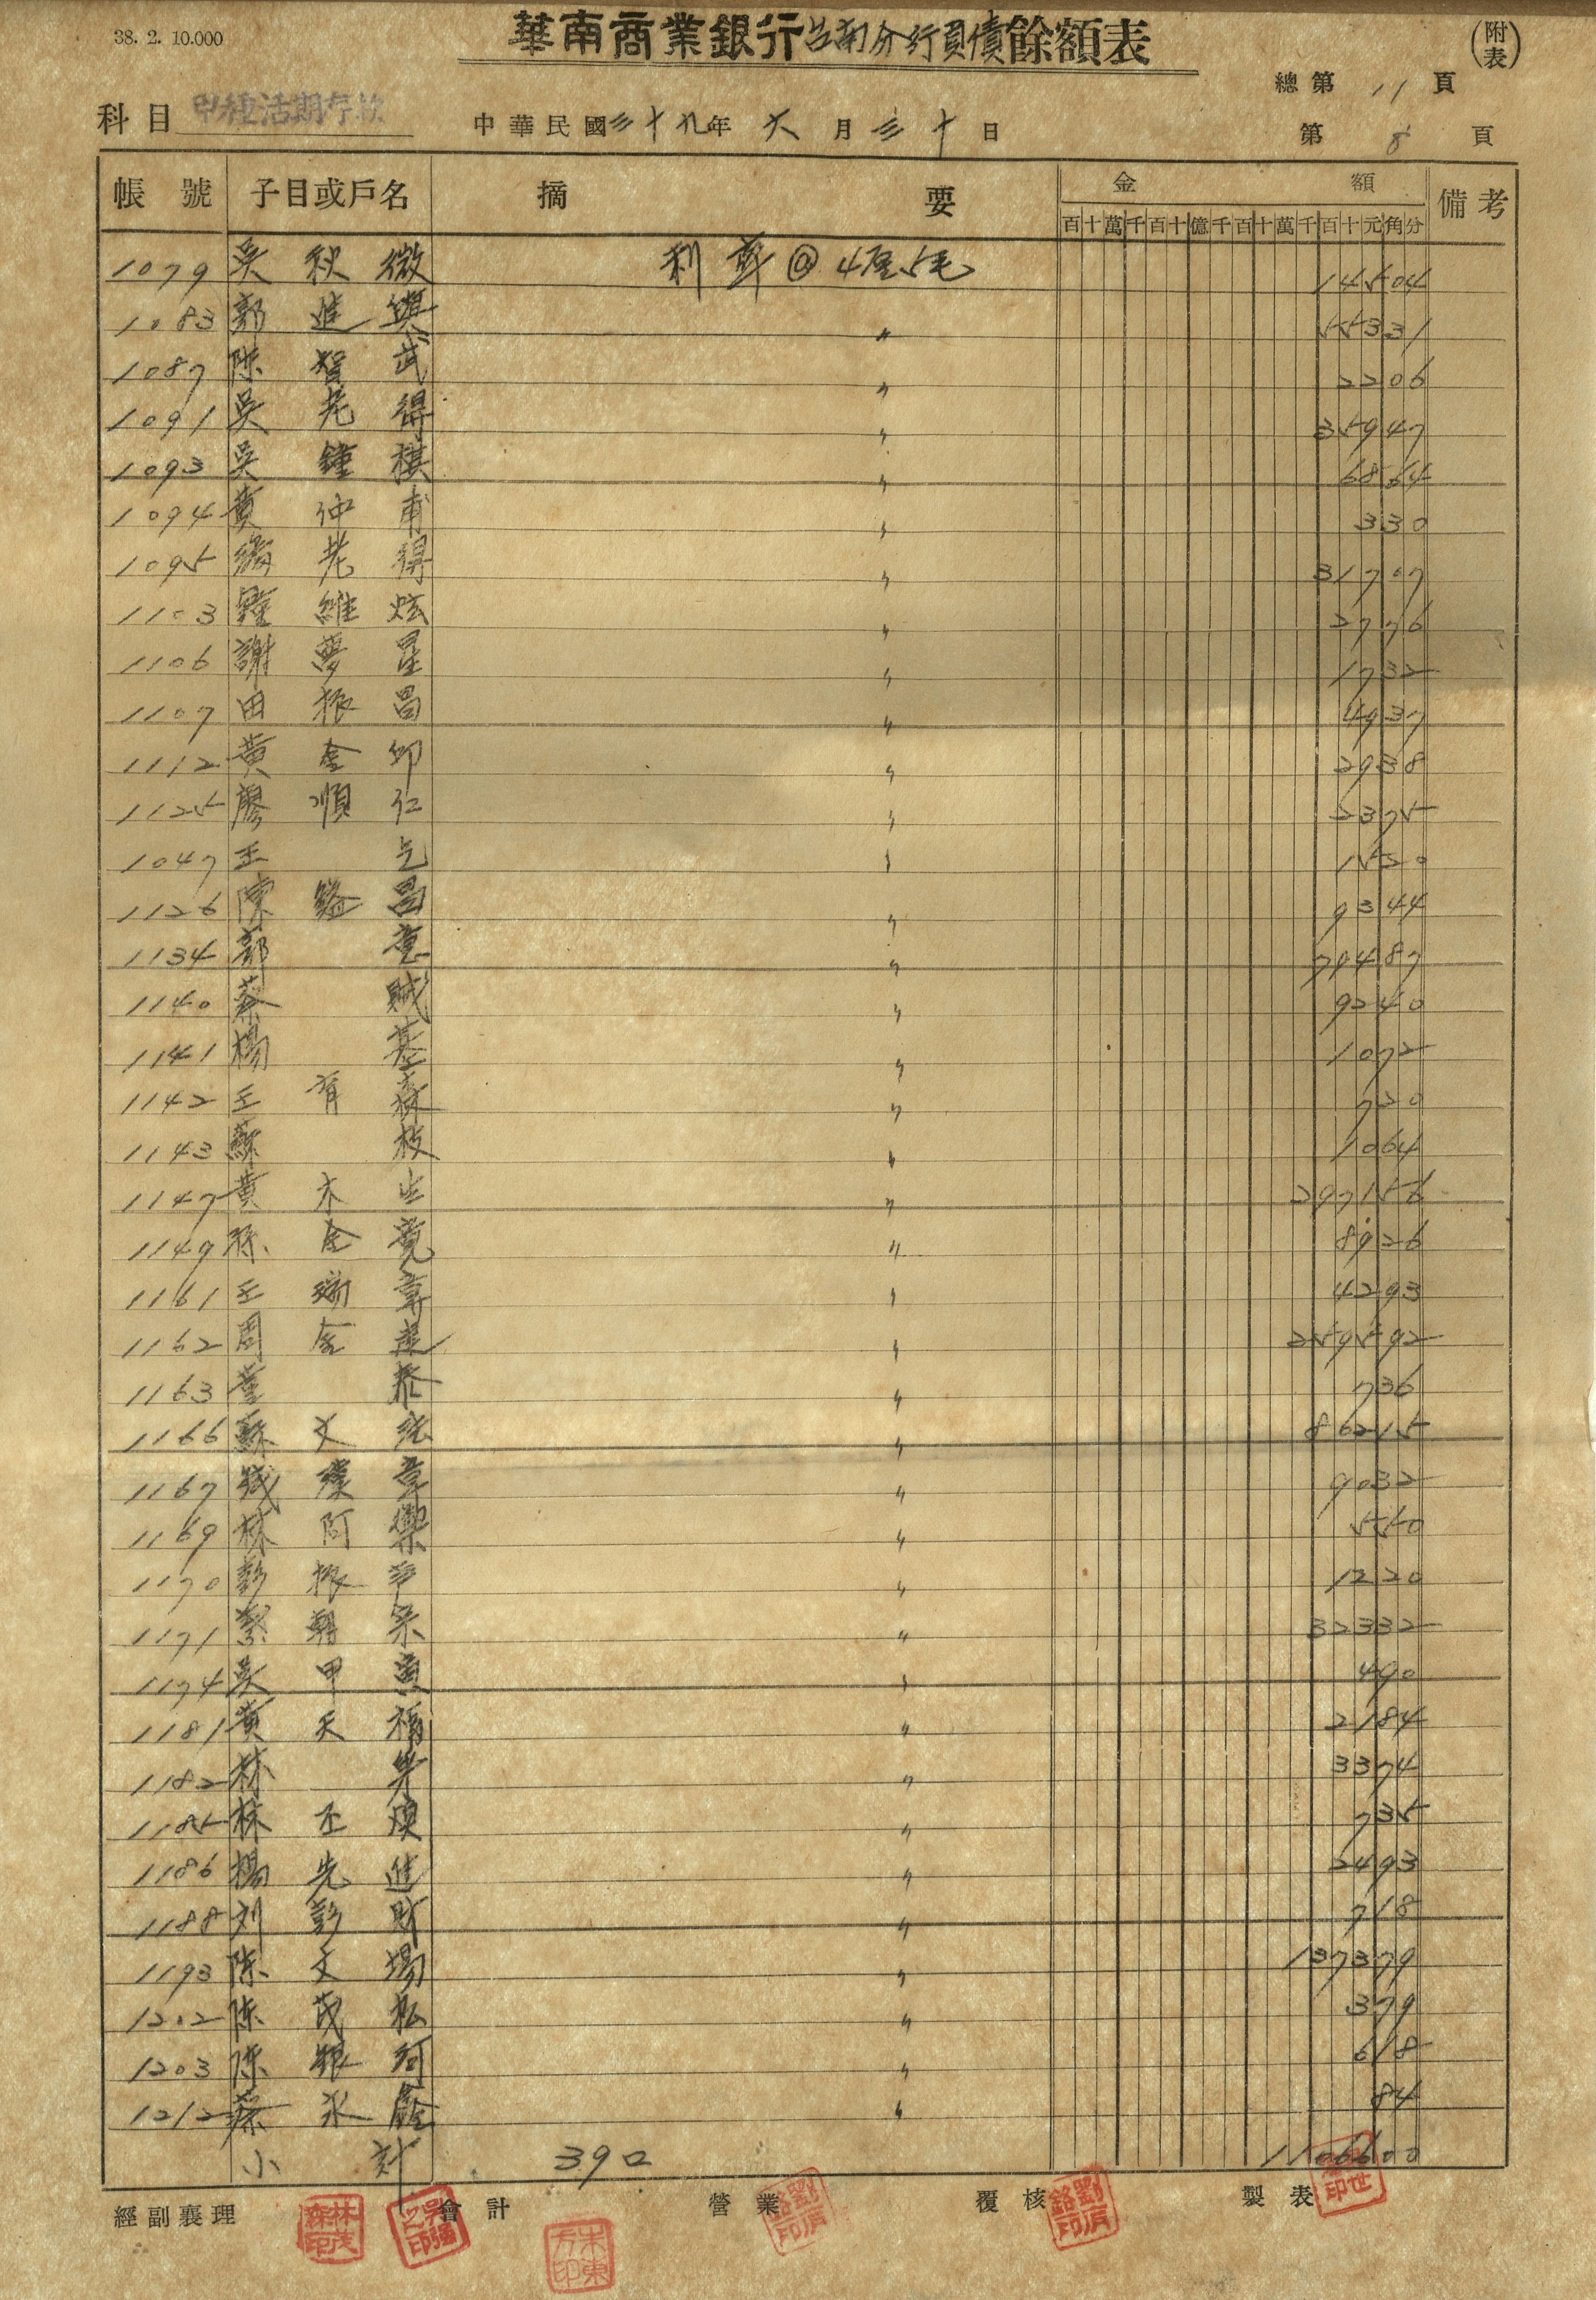 38. 2. 10.000
華南商業銀行台南分行負債餘額表
(附表)
總第 11 頁
科目 甲種活期存款
中華民國三十九年六月三十日
第 8 頁
帳號 子目或戶名 摘要 金額 備考
百十萬千百十億千百十萬千百十元角分
1079 吳秋微 利率@4厘5毛 14504
1083 郭進興 〃 55331
1087 陳智武 〃 2206
1091 吳老得 〃 35947
1093 吳鐘棋 〃 6864
1094 黃仲甫 〃 330
1095 老得 〃 31707
1103 鐘維炫 〃 2776
1106 謝夢星 〃 1732
1107 田振昌 〃 4937
1112 黃金印 〃 2938
1125 廖順仁 〃 2375
1047 王 〃 1520
1126 陳昌 〃 9344
1134 郭意 〃 79487
1140 蔡賊 〃 9240
1141 楊基 〃 1072
1142 王有 〃 720
1143 蘇枝 〃 1064
1147 黃木生 〃 297156
1149 孫金寬 〃 8926
1161 王瑞章 〃 4293
1162 周金進 〃 259592
1163 董泰 〃 736
1166 蘇文 〃 86215
1167 章 〃 9032
1169 林阿樂 〃 550
1170 彭振 〃 1220
1171 朝榮 〃 32332
1174 吳甲寅 〃 490
1181 黃天福 〃 2184
1182 林 〃 3374
1185 林丕煥 〃 735
1186 楊先進 〃 2493
1188 刘彭財 〃 718
1193 陳文場 〃 137379
1202 陳茂松 〃 379
1203 陳銀河 〃 618
1212 蔡永 〃 84
小計 390 1106600
經副襄理 會計 營業 覆核 製表